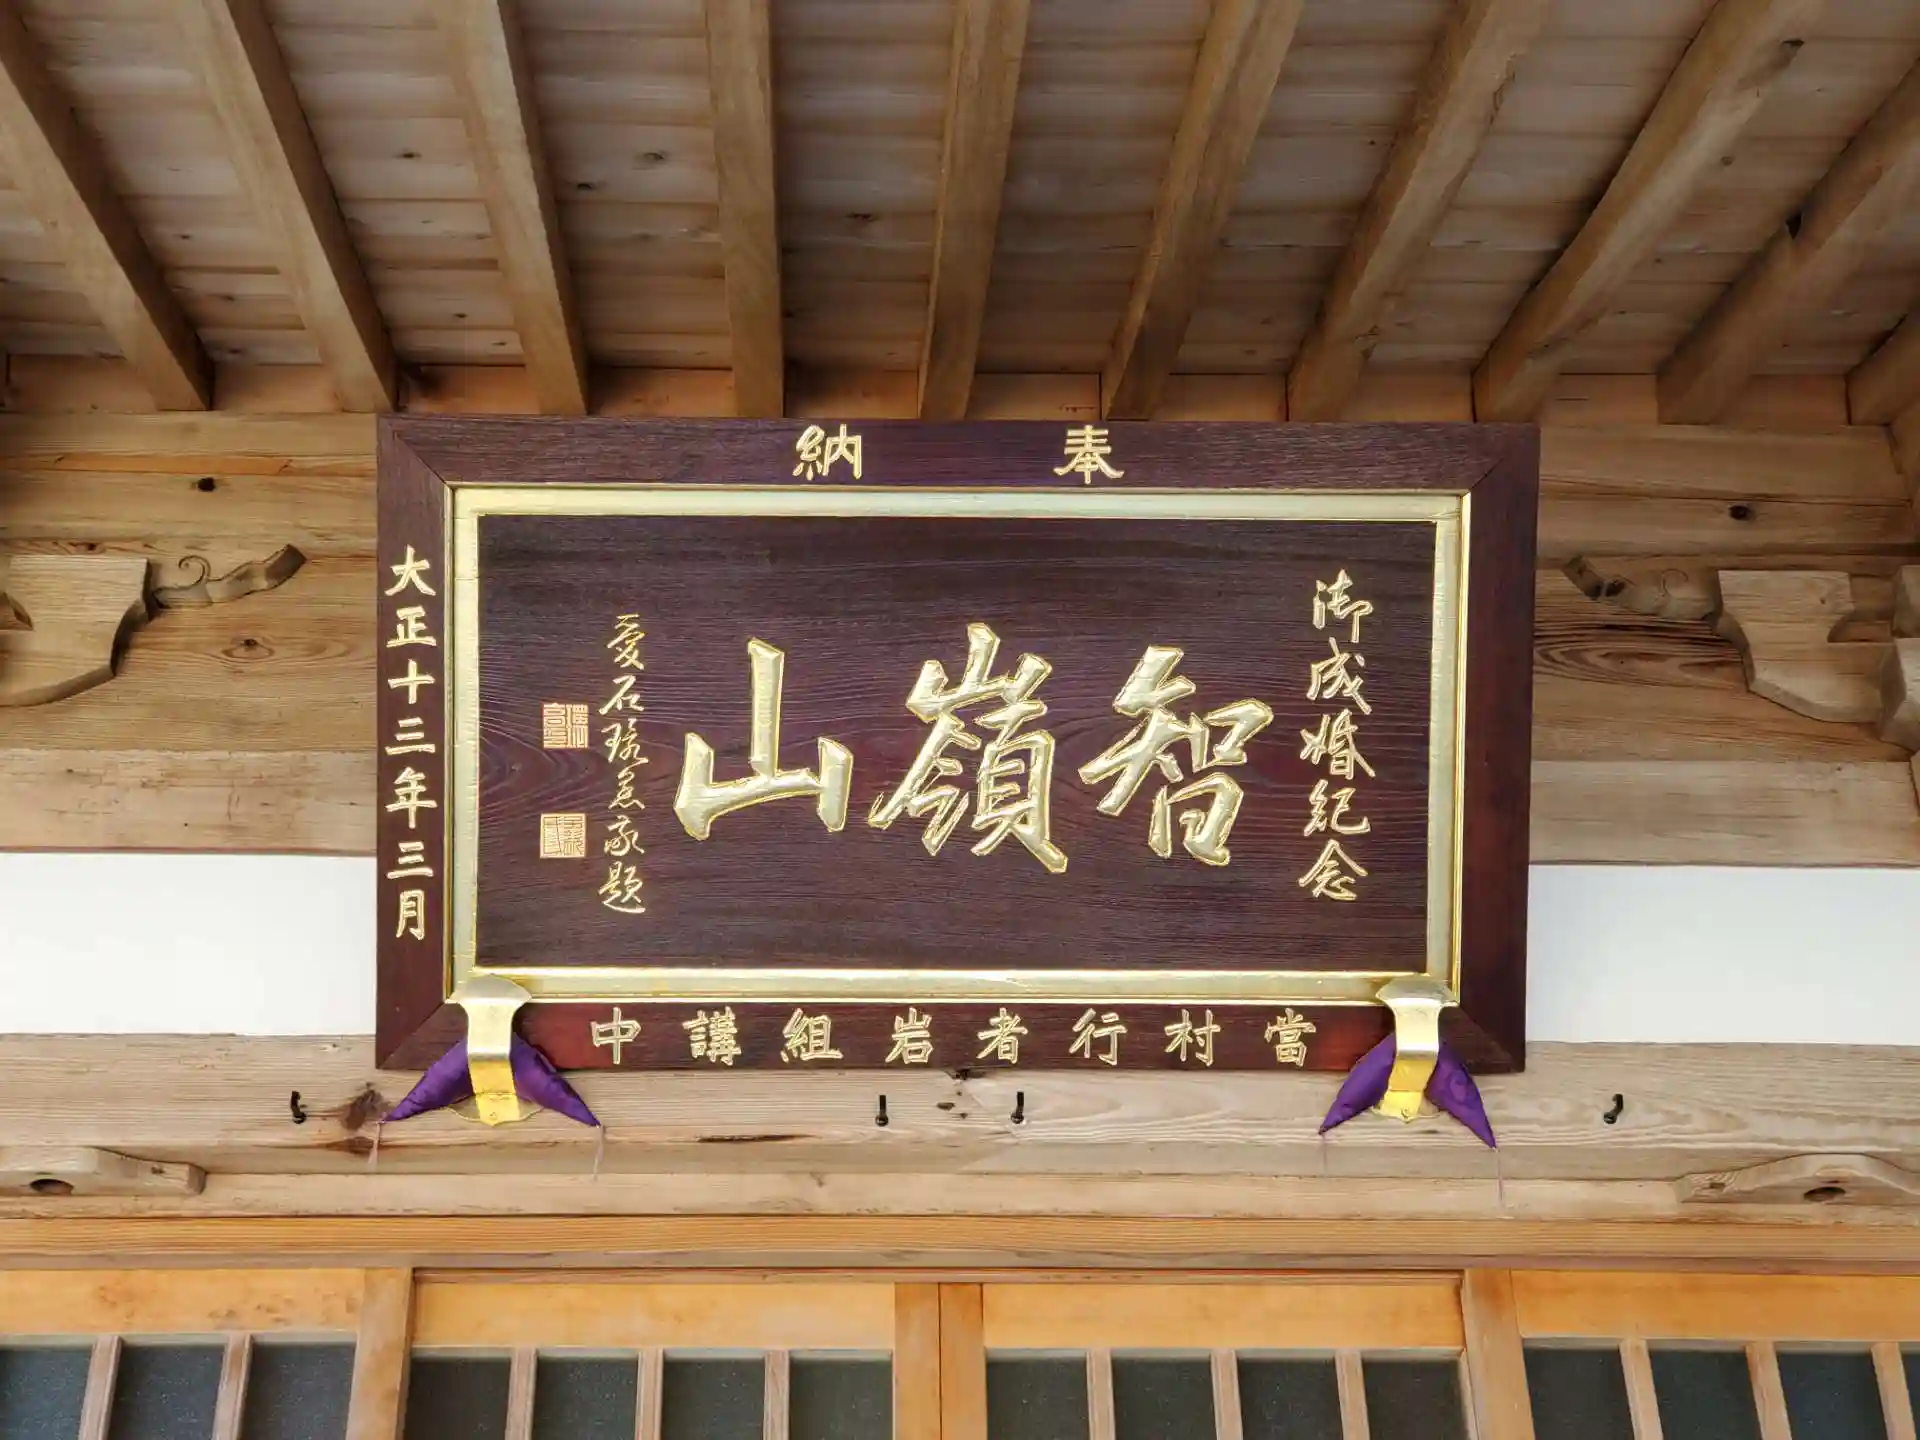 奉納
御成婚紀念
智嶺山
愛石 題
大正十三年三月
當村行者岩組講中